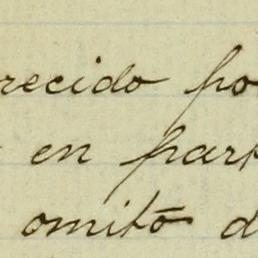 recido po
en part
omitó d